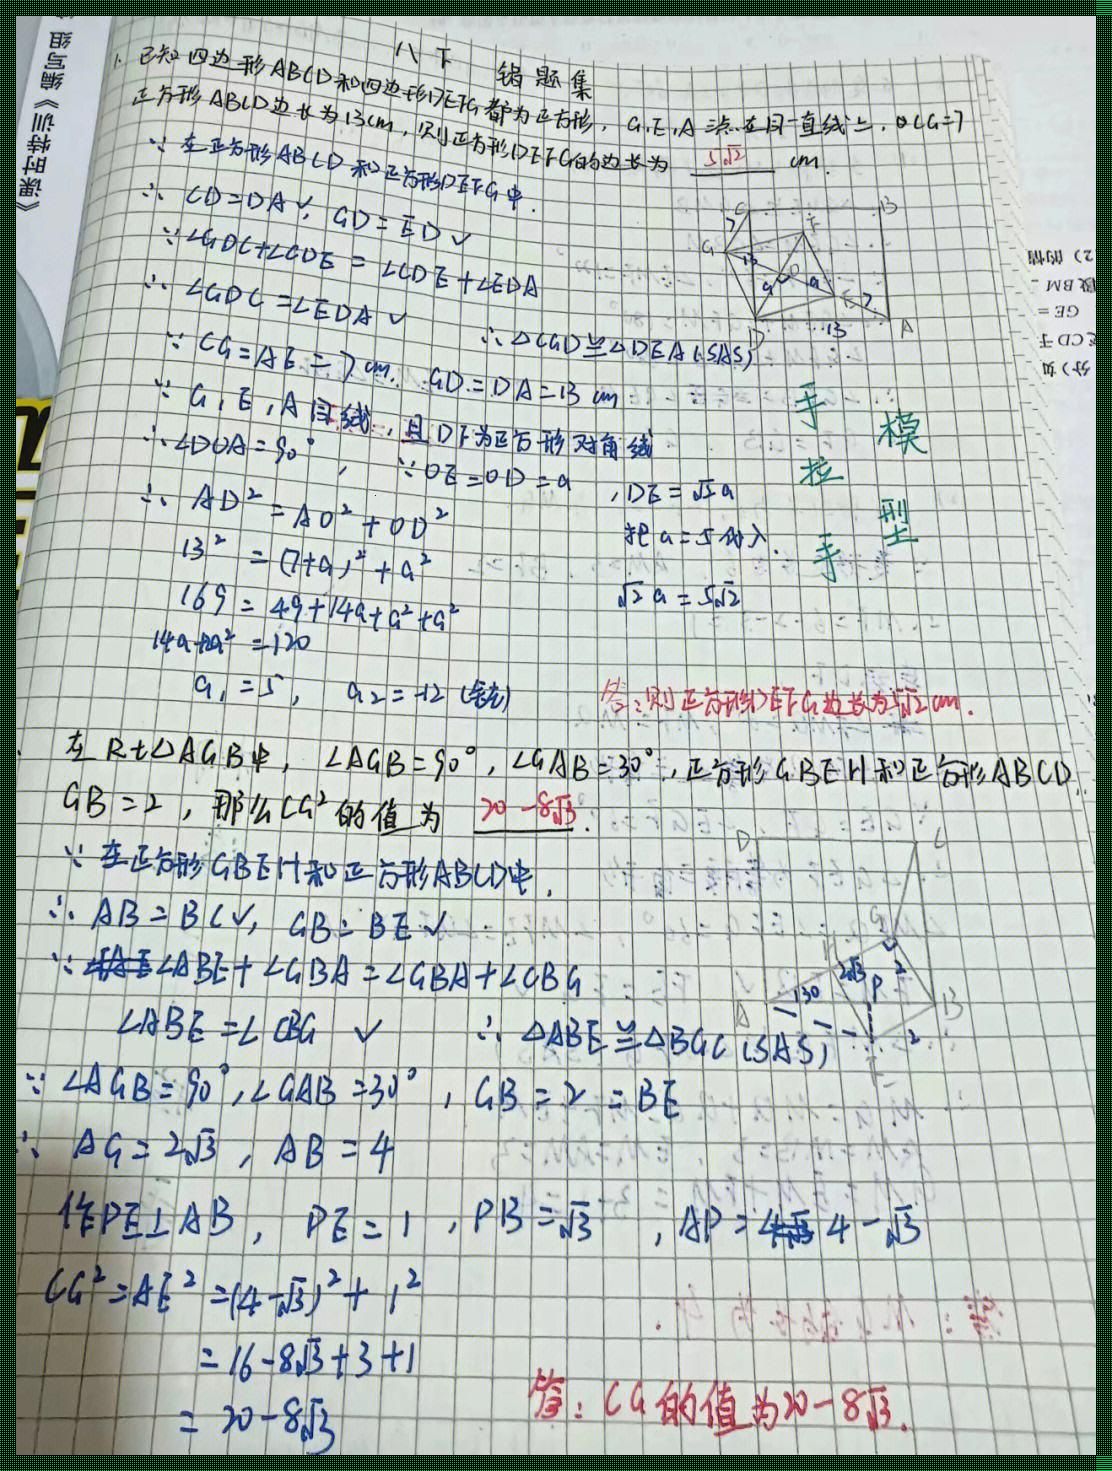 八下 错题集
1. 已知四边形ABCD和四边形DEFG都为正方形，G,E,A三点在同一直线上，CG=7
正方形ABCD边长为13cm，则正方形DEFG的边长为 5√2 cm.
∵ 在正方形ABCD和正方形DEFG中.
∴ CD=DA✓, GD=ED✓
∵ ∠GDC+∠CDE = ∠CDE+∠EDA
∴ ∠GDC=∠EDA ✓ ∴ △CGD≌△DEA(SAS)
∵ CG=AE=7cm. GD=DA=13 cm
∵ G,E,A同线，且DF为正方形对角线
∴ ∠DOA=90°, ∵ OE=OD=a , DE=√2a
∴ AD²=AO²+OD² 把a=5代入.
13²=(7+a)²+a² √2a=5√2
169=49+14a+a²+a²
14a+2a²=120
a₁=5, a₂=-12(舍)
手拉手
模型
答:则正方形DEFG边长为5√2cm.
C B G F 7 13 O a a E 7 D 13 A
在Rt△AGB中，∠AGB=90°，∠GAB=30°，正方形GBEH和正方形ABCD,
GB=2，那么CG²的值为 20-8√3.
∵ 在正方形GBEH和正方形ABCD中,
∴ AB=BC✓, GB=BE✓
∵ ∠ABE+∠GBA=∠GBA+∠CBG
∠ABE=∠CBG ✓ ∴ △ABE≌△BGC(SAS)
∵ ∠AGB=90°,∠GAB=30°, GB=2=BE
∴ AG=2√3, AB=4
作PE⊥AB, PE=1, PB=√3, AP=4-√3
CG²=AE²=(4-√3)²+1²
=16-8√3+3+1
=20-8√3
答:CG的值为20-8√3.
D C G 2√3 2 P 30 A B 2 E
《课时特训》编写组
2) 的情
段BM
GE=
CD于
分) 如